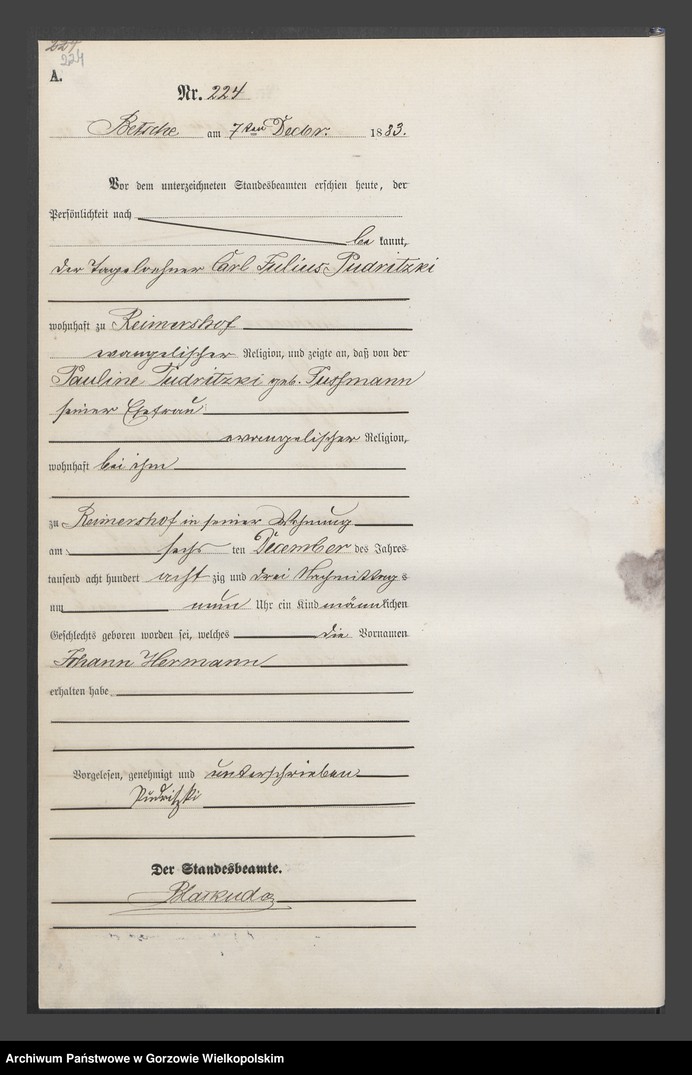 224
224
A.
Nr. 224
Betsche am 7ten Decbr. 1883.
Vor dem unterzeichneten Standesbeamten erschien heute, der
Persönlichkeit nach
be kannt,
der Tagelöhner Carl Julius Pudritzki
wohnhaft zu Reimershof
evangelischer Religion, und zeigte an, daß von der
Pauline Pudritzki geb. Fussmann
seiner Ehefrau
evangelischer Religion,
wohnhaft bei ihm
zu Reimershof in seiner Wohnung
am sechs ten December des Jahres
tausend acht hundert acht zig und drei Nachmittags
um neun Uhr ein Kind männlichen
Geschlechts geboren worden sei, welches die Vornamen
Johann Hermann
erhalten habe
Vorgelesen, genehmigt und unterschrieben
Pudritzki
Der Standesbeamte.
Archiwum Państwowe w Gorzowie Wielkopolskim